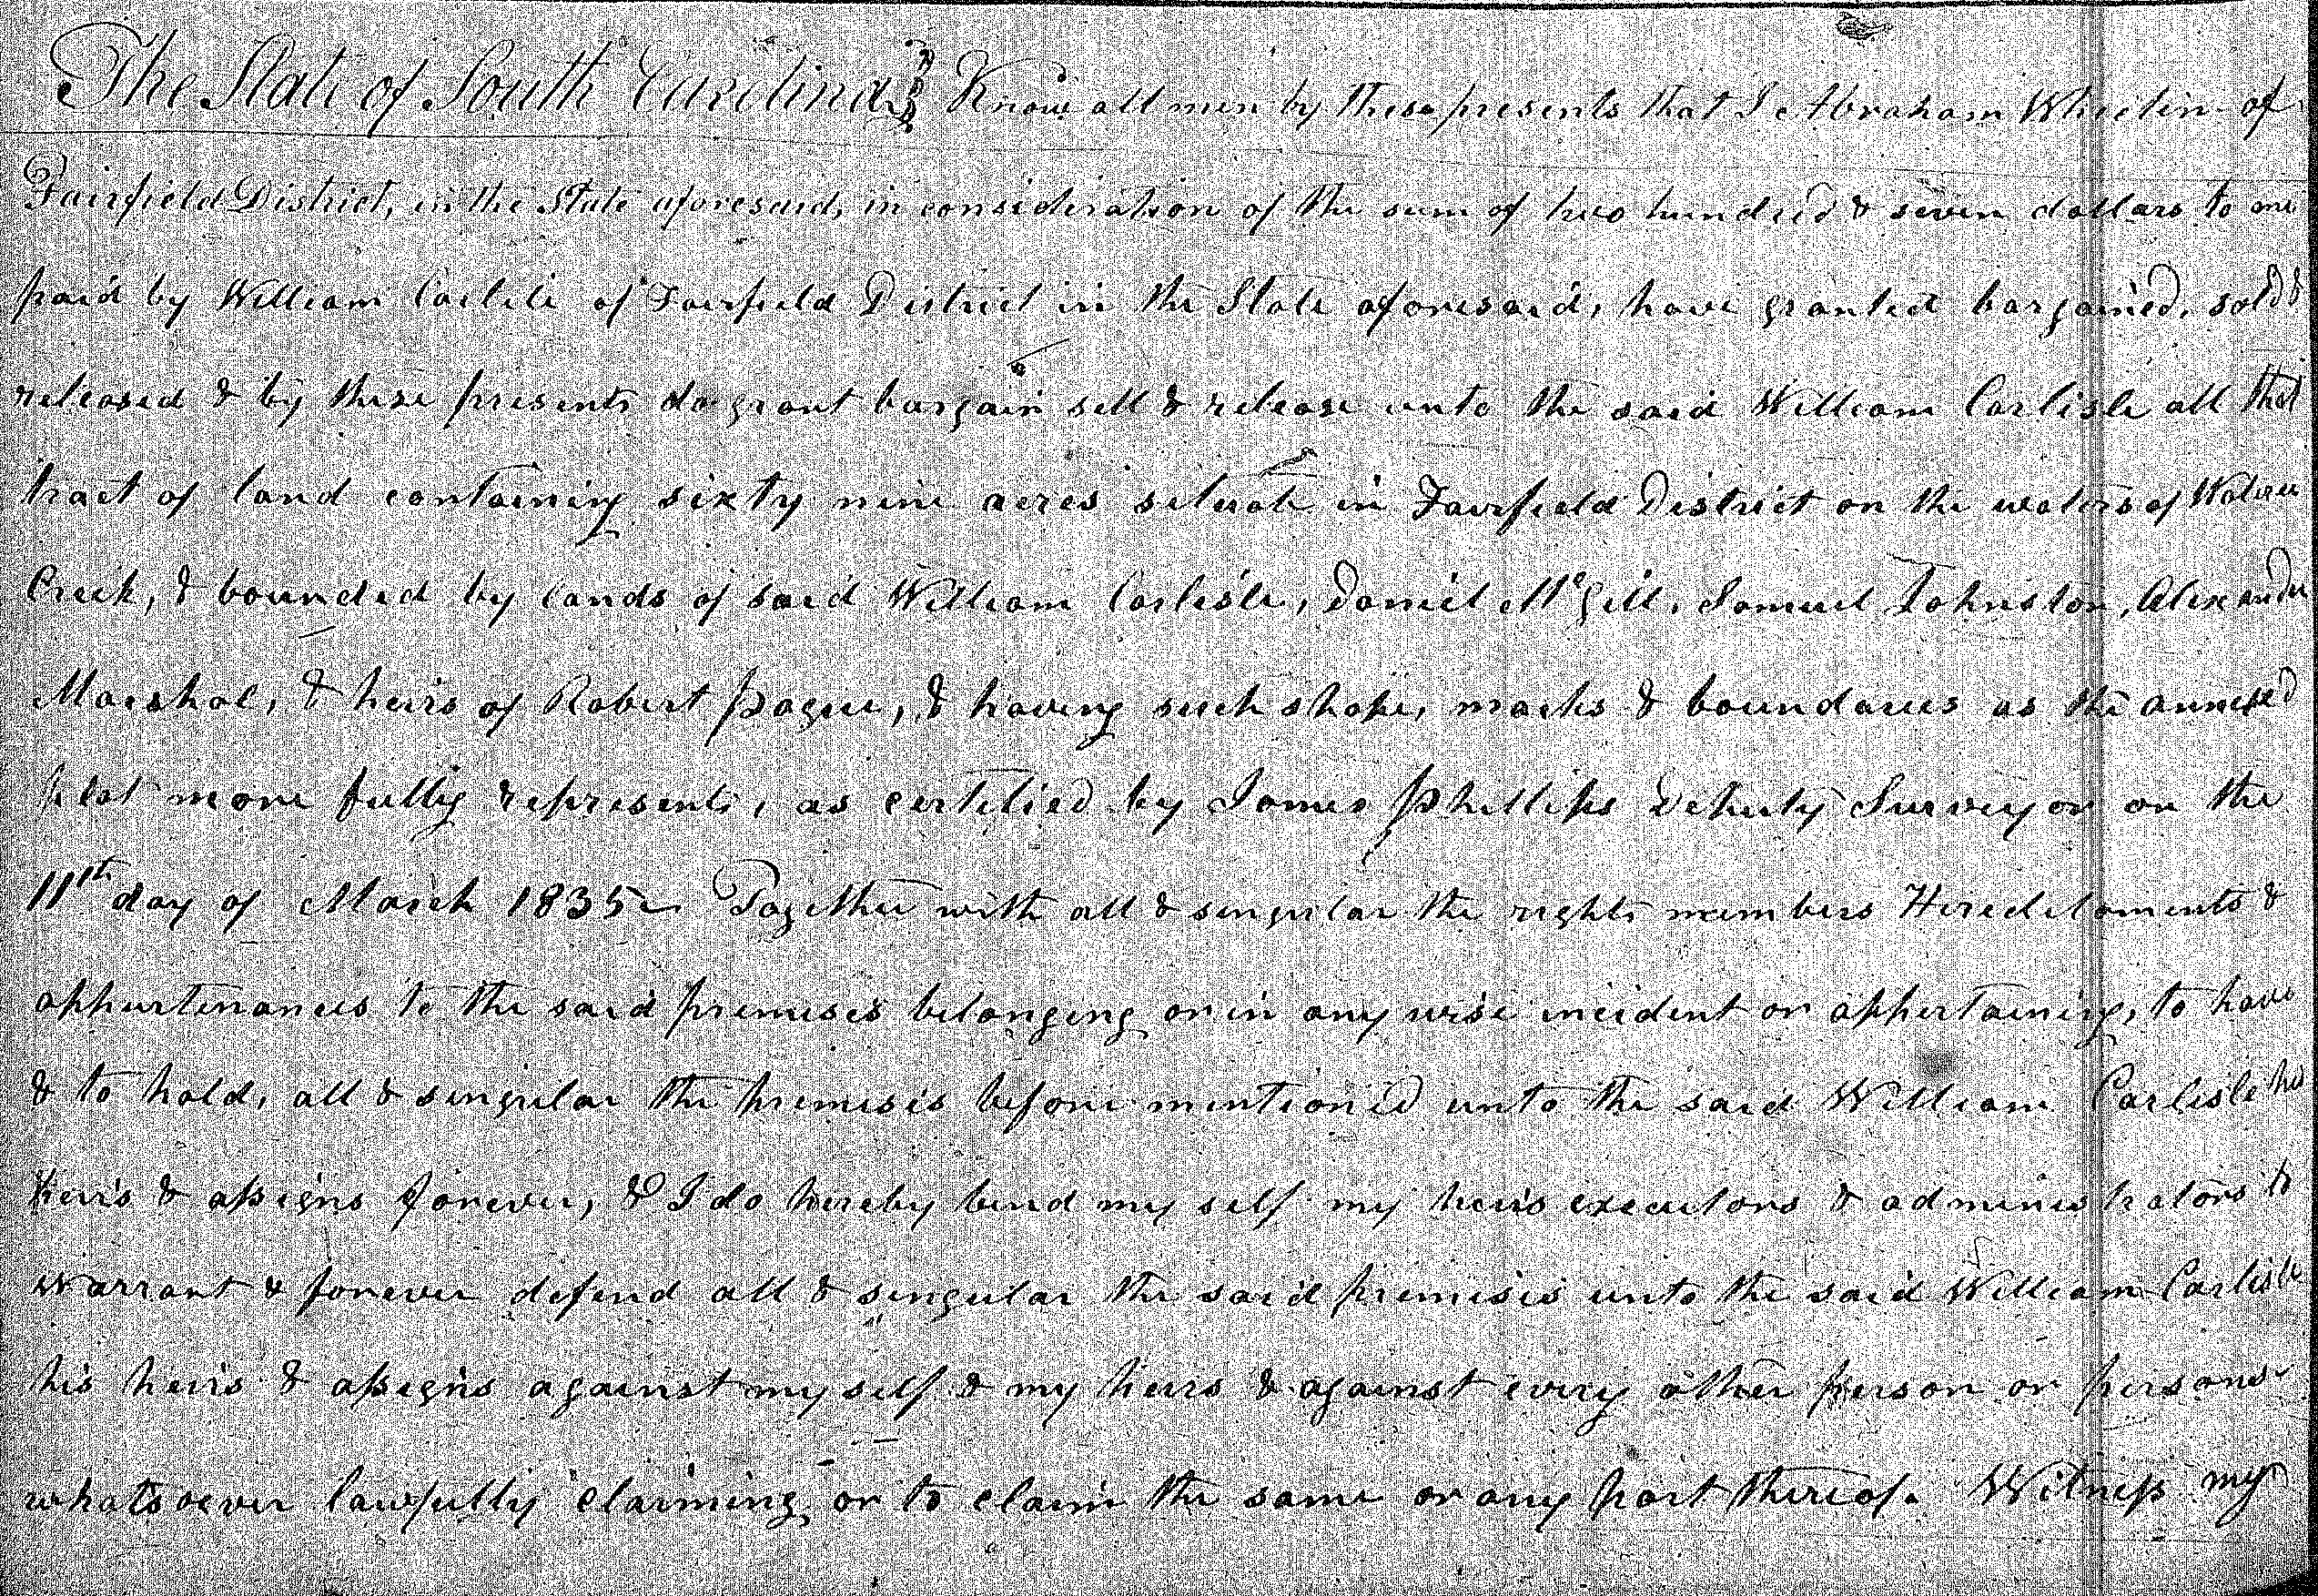 The State of South Carolina } Know all men by these presents that I Abraham of
Fairfield District, in the State aforesaid, in consideration of the sum of two hundred & seven dollars to me
paid by William Carlile of Fairfield District in the State aforesaid, have granted bargained, sold &
released & by these presents do grant bargain sell & release unto the said William Carlisle all that
tract of land containing sixty nine acres situate in Fairfield District on the waters of Wateree
Creek, & bounded by lands of said William Carlisle, Daniel McGill, Samuel Johnston, Alexander
Marshal, & heirs of Robert pague, & having such shape, marks & boundaries as the annexed
plat more fully represents, as certified by James Phillips Deputy Surveyor on the
11th day of March 1835 Together with all & singular the rights members Hereditaments &
appurtenances to the said premises belonging or in any wise incident or appertaining, to have
& to hold, all & singular the premises before mentioned unto the said William Carlisle his
heirs & assigns forever, & I do hereby bind my self my heirs executors & administrators to
warrant & forever defend all & singular the said premises unto the said William Carlisle
his heirs & assigns against my self & my heirs & against every other person or persons
whatsoever lawfully claiming or to claim the same or any part thereof. Witness my